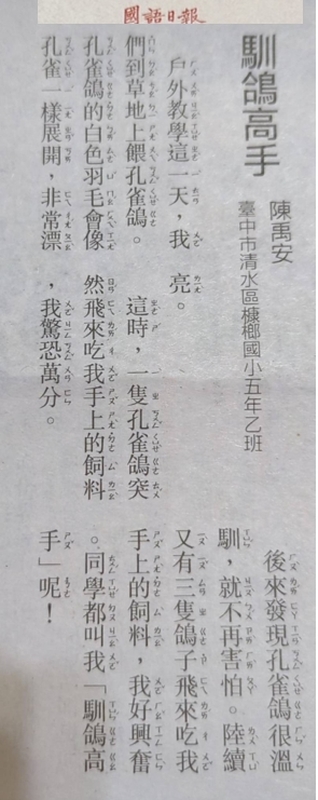 國語日報
馴鴿高手
陳禹安
臺中市清水區槺榔國小五年乙班
戶外教學這一天，我
們到草地上餵孔雀鴿。
孔雀鴿的白色羽毛會像
孔雀一樣展開，非常漂
亮。
這時，一隻孔雀鴿突
然飛來吃我手上的飼料
，我驚恐萬分。
後來發現孔雀鴿很溫
馴，就不再害怕。陸續
又有三隻鴿子飛來吃我
手上的飼料，我好興奮
。同學都叫我「馴鴿高
手」呢！